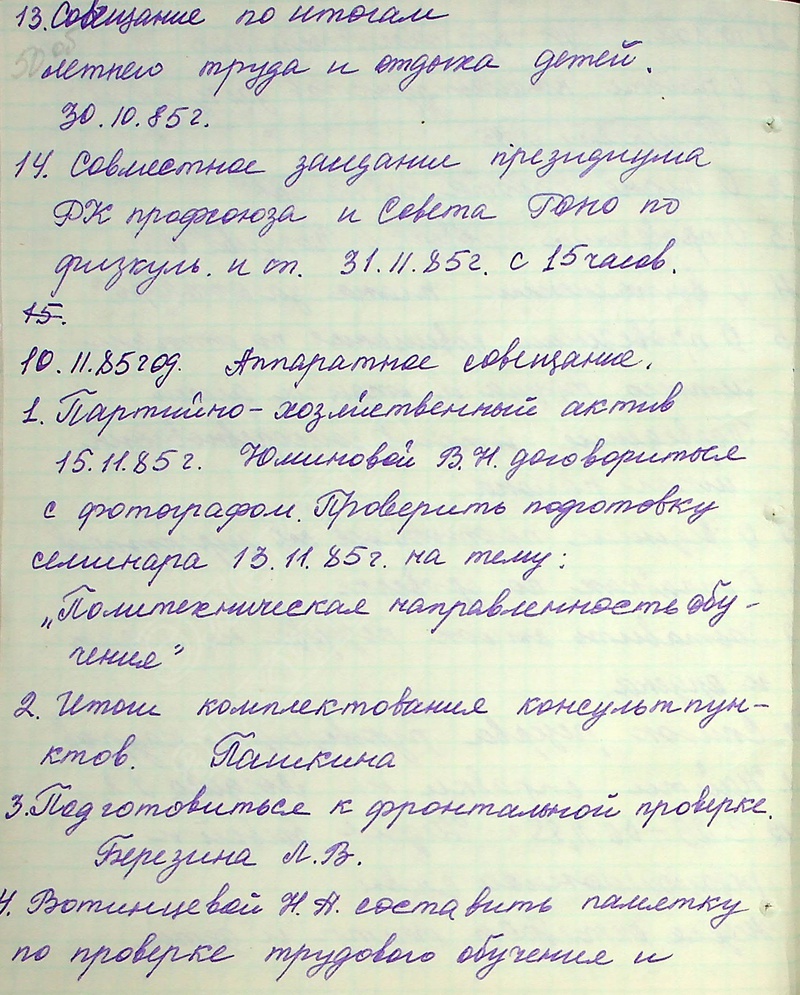 13. Совещание по итогам
летнего труда и отдыха детей.
30.10.85г.
14. Совместное заедание президиума
РК профсоюза и Совета ГОНО по
физкуль. и сп. 31.11.85г. с 15 часов.
15.
10.11.85год. Аппаратное совещание.
1. Партийно-хозяйственный актив
15.11.85г. Юминовой В.Н. договориться
с фотографом. Проверить подготовку
семинара 13.11.85г. на тему:
„Политехническая направленность обу-
чения"
2. Итоги комплектования консультпун-
ктов. Пашкина
3. Подготовиться к фронтальной проверке.
Березина Л.В.
4. Вотинцевой Н.А. составить памятку
по проверке трудового обучения и